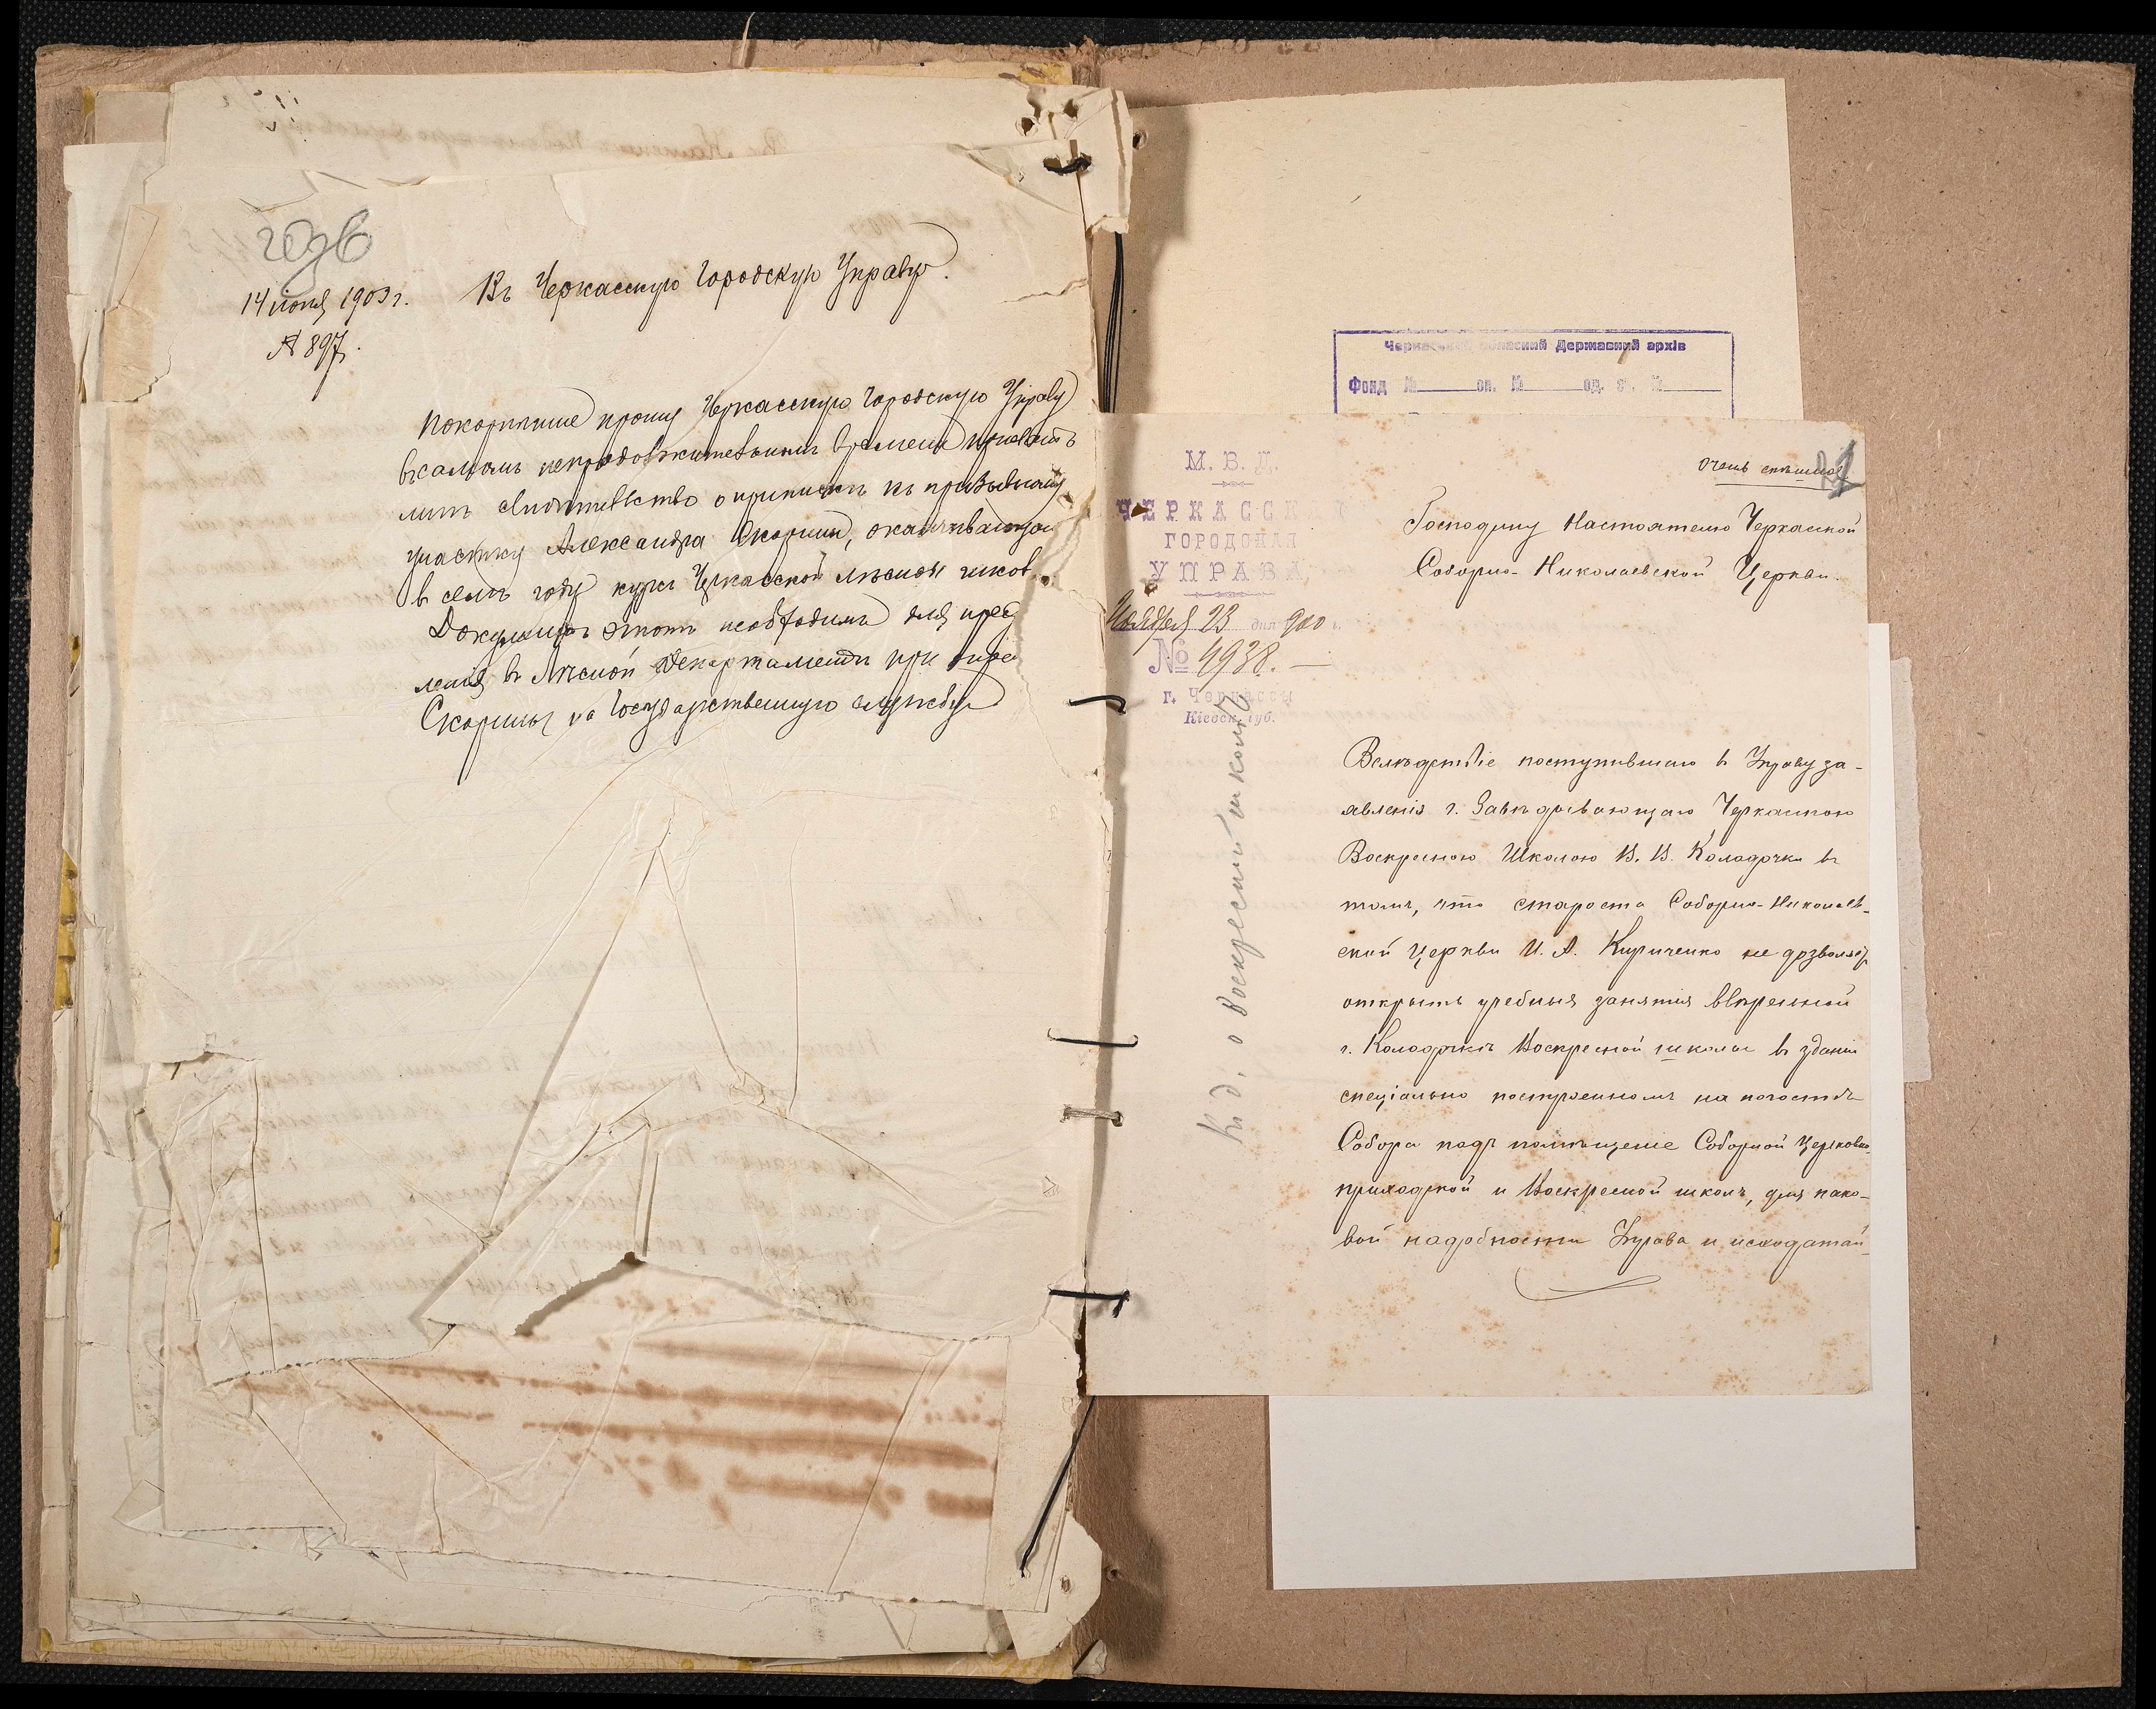 14 іюня 1903 г.
№ 897.
Въ Черкасскую Городскую Управу.
Покорнѣйше прошу Черкасскую Городскую Управу
въ самомъ непродолжительномъ времени
свидѣтельство о припискѣ къ призывному
участку Александра Скорины, оканчивающаго
въ семъ году курсъ Черкасской лѣсной школы
Документъ этотъ необходимъ для пред
ленія въ Лѣсной Департаментъ при опре
Скорины на Государственную службу
Черкаський обласний Державний архів
Фонд № оп. № од. зб. №
М. В. Д.
ЧЕРКАССК
ГОРОДСКАЯ
УПРАВА
Ноября 23 дня 900 г.
№ 4938.
г. Черкассы
Кіевск. губ.
К. д. о воскресной школѣ
Очень спѣшное
Господину Настоятелю Черкасской
Соборно-Николаевской Церкви.
Вслѣдствіе поступившаго въ Управу за-
явленія г. Завѣдывающаго Черкасскою
Воскресною Школою В. В. Колодочки въ
томъ, что староста Соборно-Николаев-
ской Церкви И. А. Кириченко не дозволяетъ
открыть учебныя занятія ввѣренной
г. Колодочкѣ Воскресной школы въ зданіи
спеціально построенномъ на погостѣ
Собора подъ помѣщеніе Соборной Церковно-
приходской и Воскресной школъ, для како-
вой надобности Управа и исходатай-